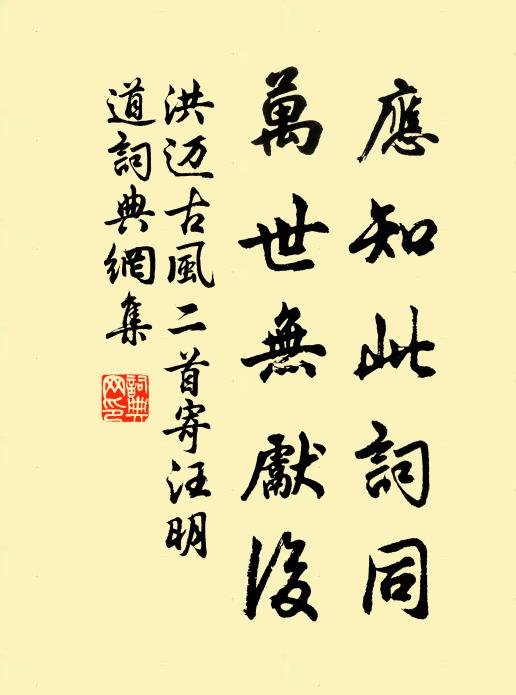 應知此詞同
萬世無獻後
洪迈古風二首寄汪明
道詞典網集
詞典網印